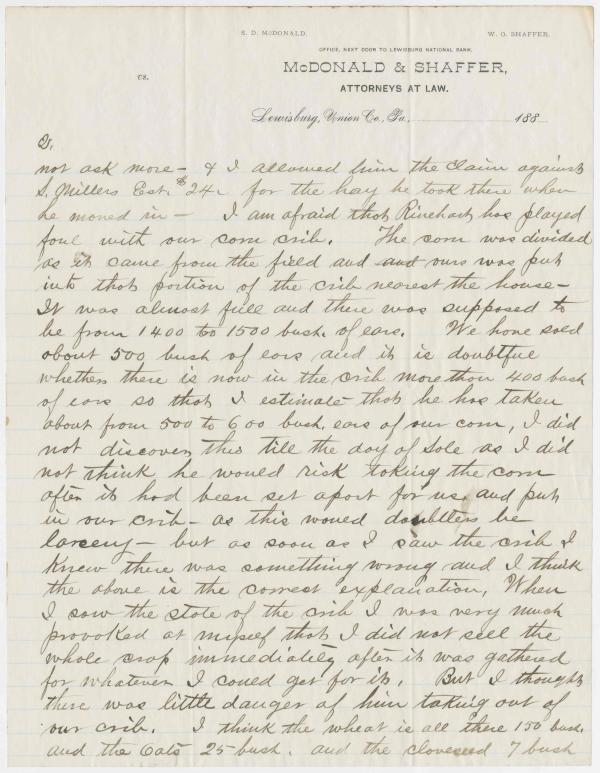 S. D. McDONALD. W. O. SHAFFER.
OFFICE, NEXT DOOR TO LEWISBURG NATIONAL BANK.
McDONALD & SHAFFER,
vs.
ATTORNEYS AT LAW.
Lewisburg, Union Co., Pa., 188
2.
not ask more – & I allowed him the claim against
S. Millers Est. $24 for the hay he took there when
he moved in – I am afraid that Rinehart has played
foul with our corn crib. The corn was divided
as it came from the field and and ours was put
into that portion of the crib nearest the house –
It was almost full and there was supposed to
be from 1400 to 1500 bush. of ears. We have sold
about 500 bush of ears and it is doubtful
whether there is now in the crib more than 400 bush
of ears so that I estimate that he has taken
about from 500 to 600 bush. ears of our corn, I did
not discover this till the day of sale as I did
not think he would risk taking the corn
after it had been set apart for us and put
in our crib – as this would doubtless be
larceny – but as soon as I saw the crib I
knew there was something wrong and I think
the above is the correct explanation. When
I saw the state of the crib I was very much
provoked at myself that I did not sell the
whole crop immediately after it was gathered
for whatever I could get for it. But I thought
there was little danger of him taking out of
our crib. I think the wheat is all there 150 bush.
and the Oats 25 bush. and the cloveseed 7 bush